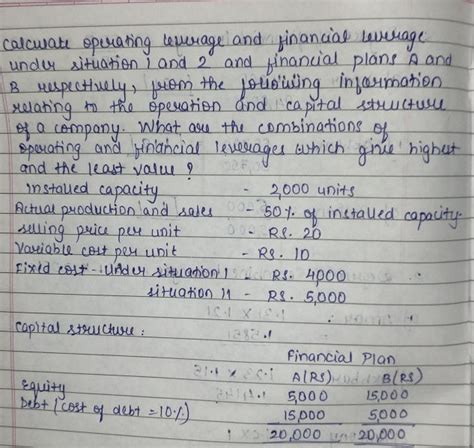 Calculate operating leverage and financial leverage
under situation 1 and 2 and financial plans A and
B respectively, from the following information
relating to the operation and capital structure
of a company. What are the combinations of
operating and financial leverages which give highest
and the least value ?
Installed capacity - 2,000 units
Actual production and sales - 50% of installed capacity.
selling price per unit - RS. 20
Variable cost per unit - RS. 10
Fixed cost - Under situation I - RS. 4000
situation II - RS. 5,000
Capital structure :
Financial Plan
A(RS) B(RS)
Equity 5,000 15,000
Debt (Cost of debt = 10%) 15,000 5,000
20,000 20,000